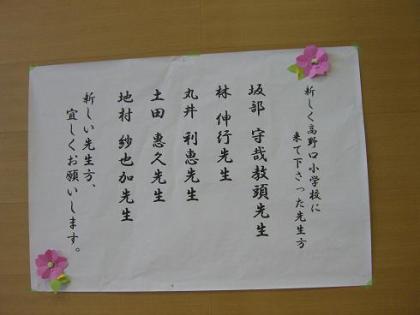 新しく高野口小学校に
来て下さった先生方
坂部 守哉教頭先生
林 伸行先生
丸井 利恵先生
土田 惠久先生
地村 紗也加先生
新しい先生方、
宜しくお願いします。